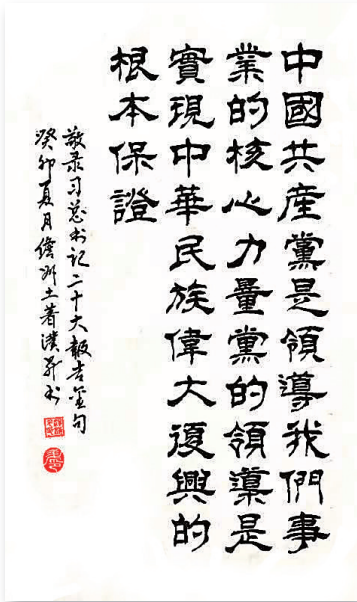 中國共産黨是領導我們事
業的核心力量黨的領導是
實現中華民族偉大復興的
根本保證
敬录习总书记二十大報告金句
癸卯夏月儋州土著漢书